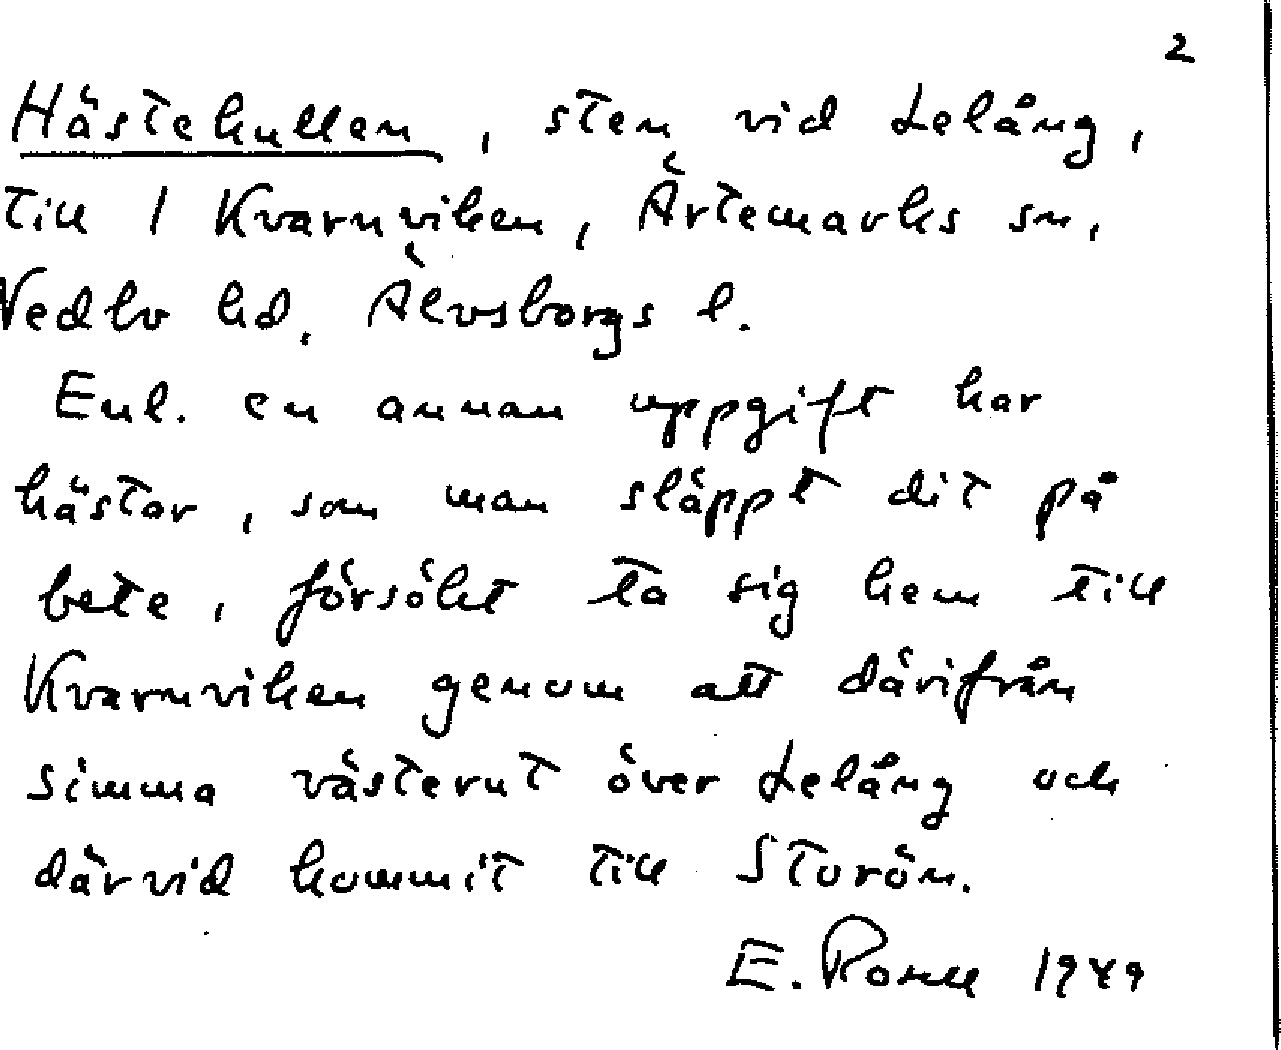 2
Hästekullen, sten vid Lelång,
till 1 Kvarnviken, Ärtemarks sn,
Vedbo hd, Älvsborgs l.
Enl. en annan uppgift har
hästar, som man släppt dit på
bete, försökt ta sig hem till
Kvarnviken genom att därifrån
simma västerut över Lelång och
därvid kommit till Storön.
E. 1949